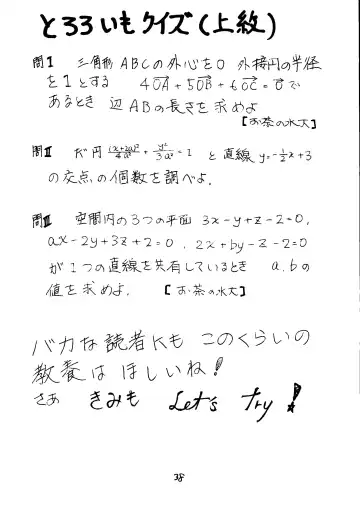 とろろいもクイズ(上級)
問I 三角形ABCの外心をO 外接円の半径
を1とする 4OA+5OB+6OC=0で
あるとき 辺ABの長さを求めよ
[お茶の水大]
問II だ円 (x+2a)²/4a² + y²/3a² = 1 と直線 y=-1/2x+3
の交点の個数を調べよ.
問III 空間内の3つの平面 3x-y+z-2=0,
ax-2y+3z+2=0, 2x+by-z-2=0
が1つの直線を共有しているとき a.bの
値を求めよ. [お茶の水大]
バカな読者Kも このくらいの
教養は ほしいね!
さあ きみも Let's Try!
38